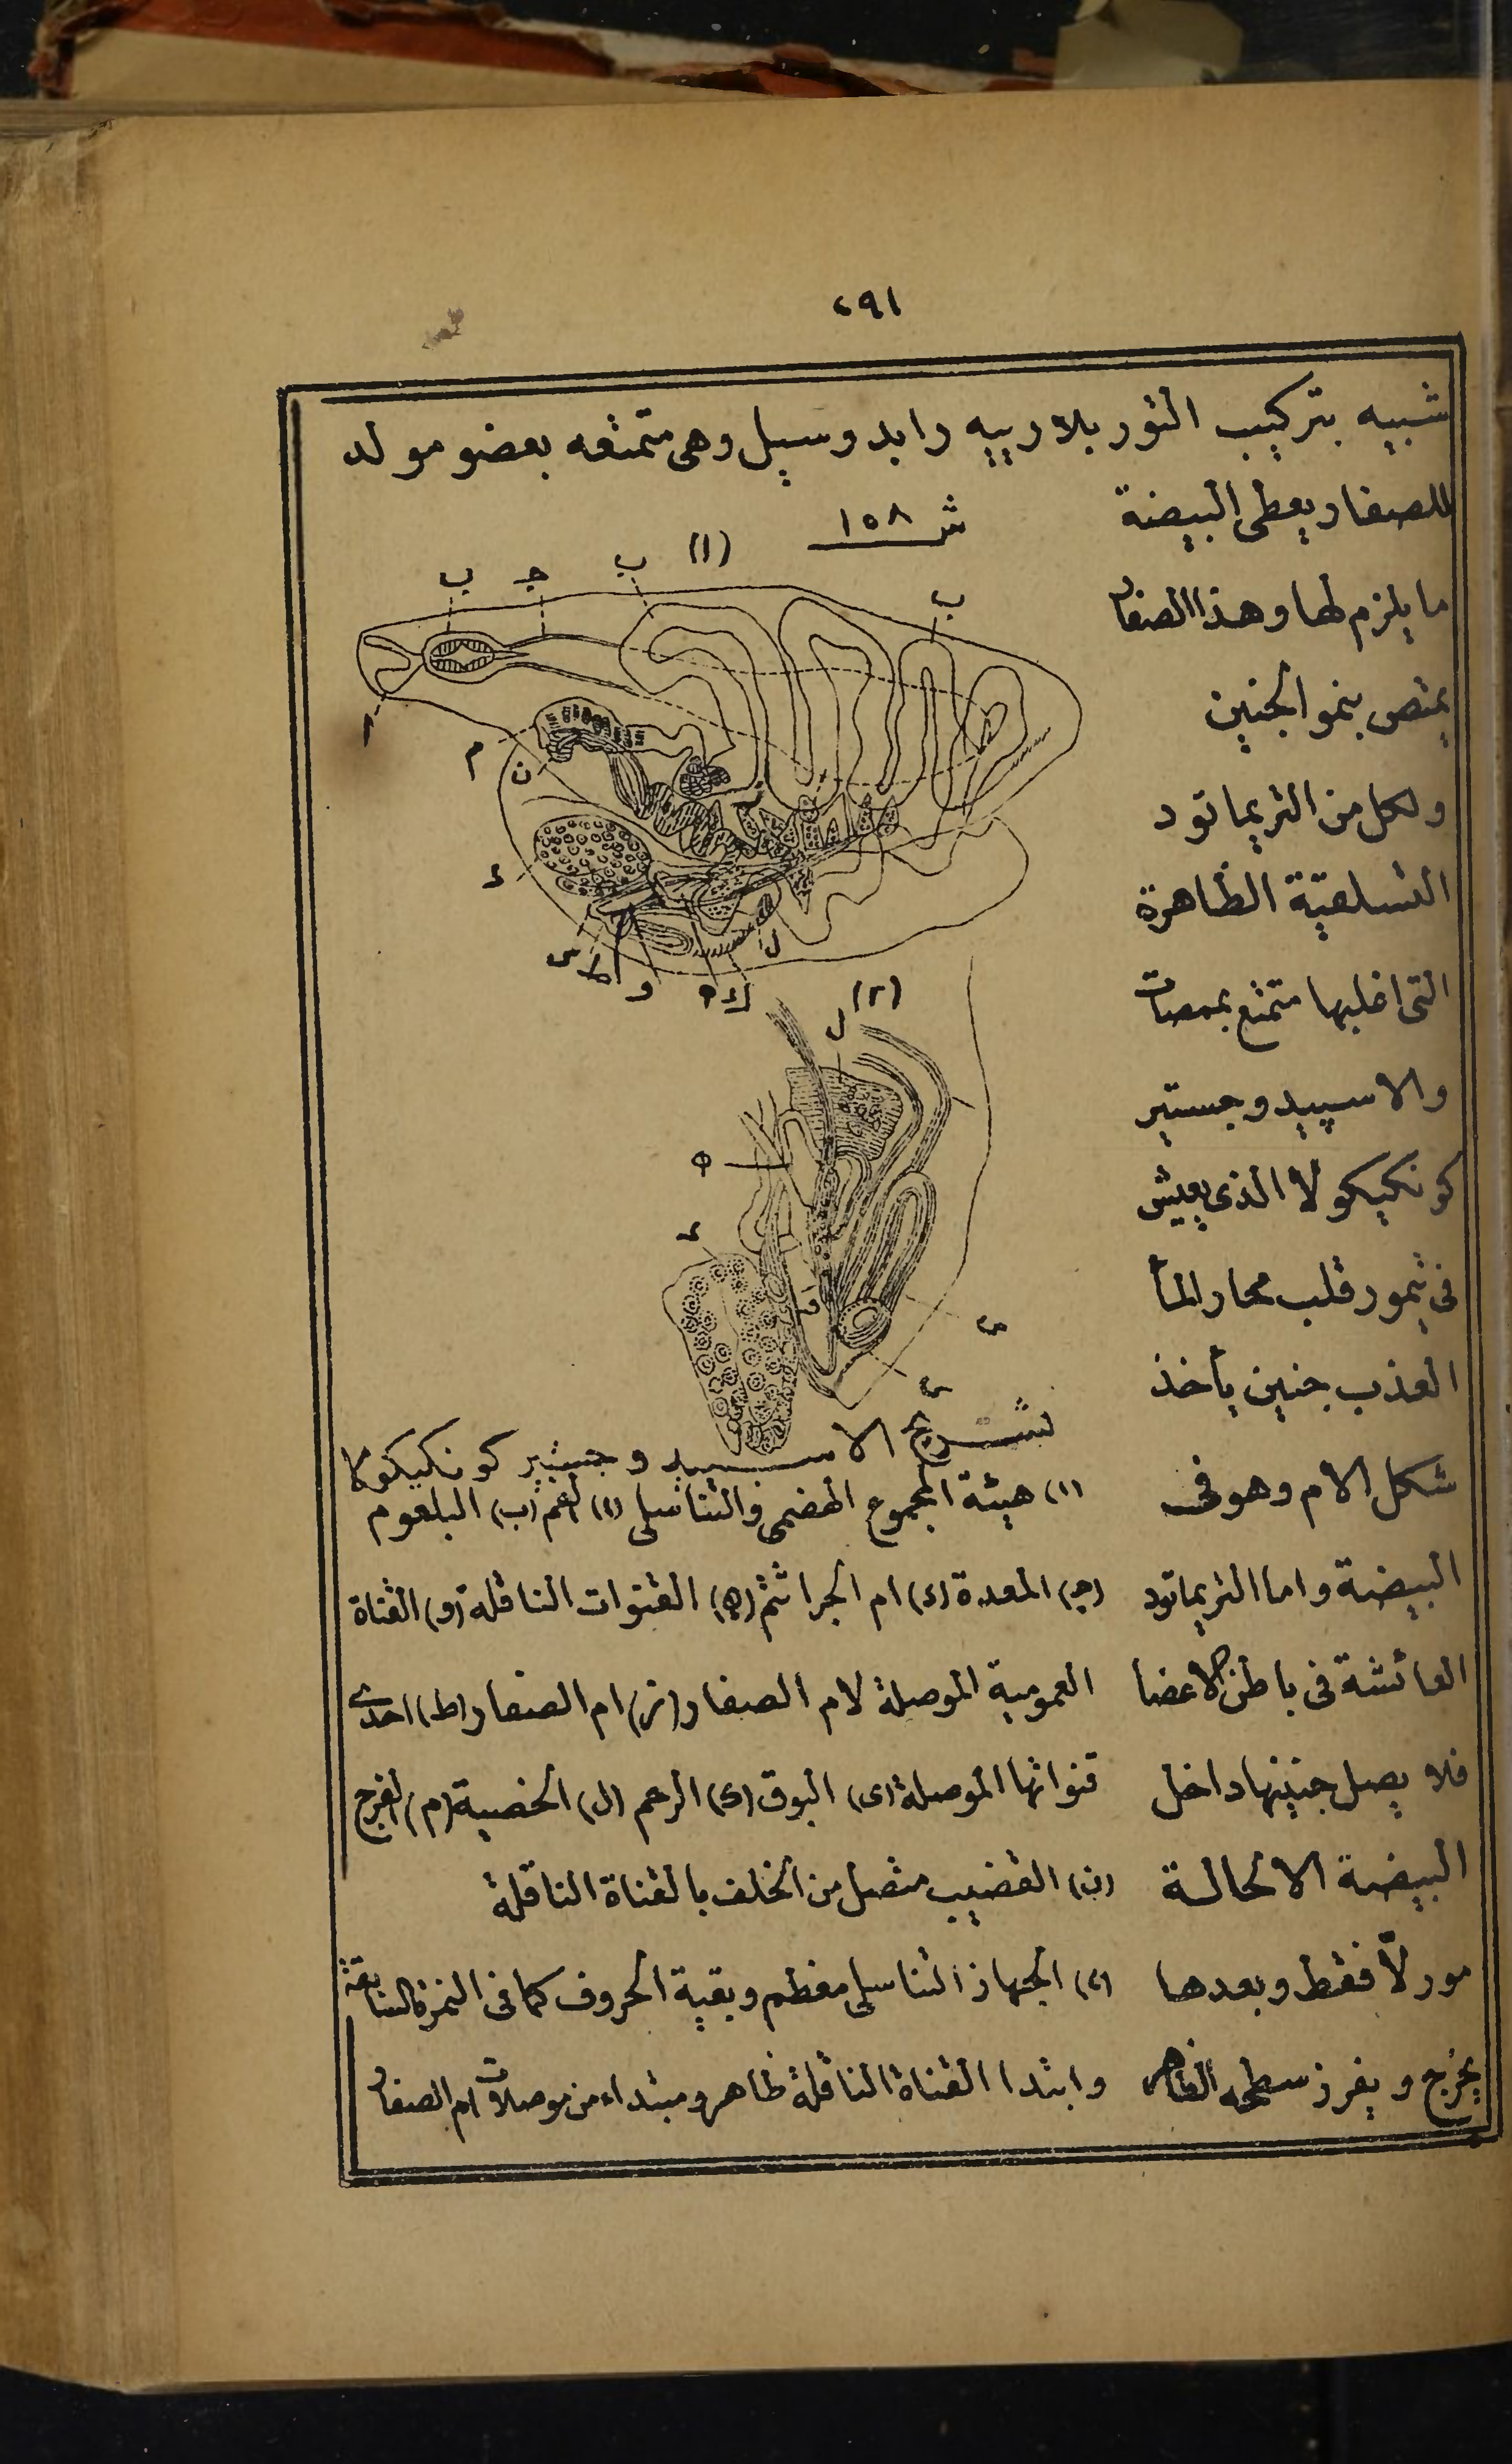 ٢٩١
شبيه بتركيب التوربلارييه رابدوسيل وهى متمتعه بعضو مولد
للصفار يعطى البيضة
ما يلزم لها وهذا الصفار
يمتص بنمو الجنين
ولكل من التريماتود
التسلقية الظاهرة
التى اغلبها متمتع بممصات
والاسپيدوجستير
كونكيكولا الذى يعيش
فى تيمور قلب محار الماء
العذب جنين يأخذ
شكل الام وهو فى
البيضة واما التريماتود
العائشة فى باطن الاعضا
فلا يصل جنينها داخل
البيضة الا لحالة
مورلّا فقط وبعدها
يخرج ويفرز سطحه الظاهر
ش ١٥٨
(١)
ب
ب
ج
ب
م
ن
د
ط
و
ه
ك
ل
(٢)
ل
ه
د
و
تشريح الاسپيدوجستير كونكيكولا
(١) هيئة المجموع الهضمى والتناسلى (ا) الفم (ب) البلعوم
(ج) المعدة (د) ام الجراثم (ه) القنوات الناقلة (و) القناة
العمومية الموصلة لام الصفار (ز) ام الصفار (ط) احدى
قنواتها الموصلة (ى) البوق (ك) الرحم (ل) الخصية (م) الفرج
(ن) القضيب متصل من الخلف بالقناة الناقلة
(٢) الجهاز التناسلى معظم وبقية الحروف كما فى النمرة السابقة
وابتدا القناة الناقلة ظاهر ومبتداء من موصلات ام الصفار